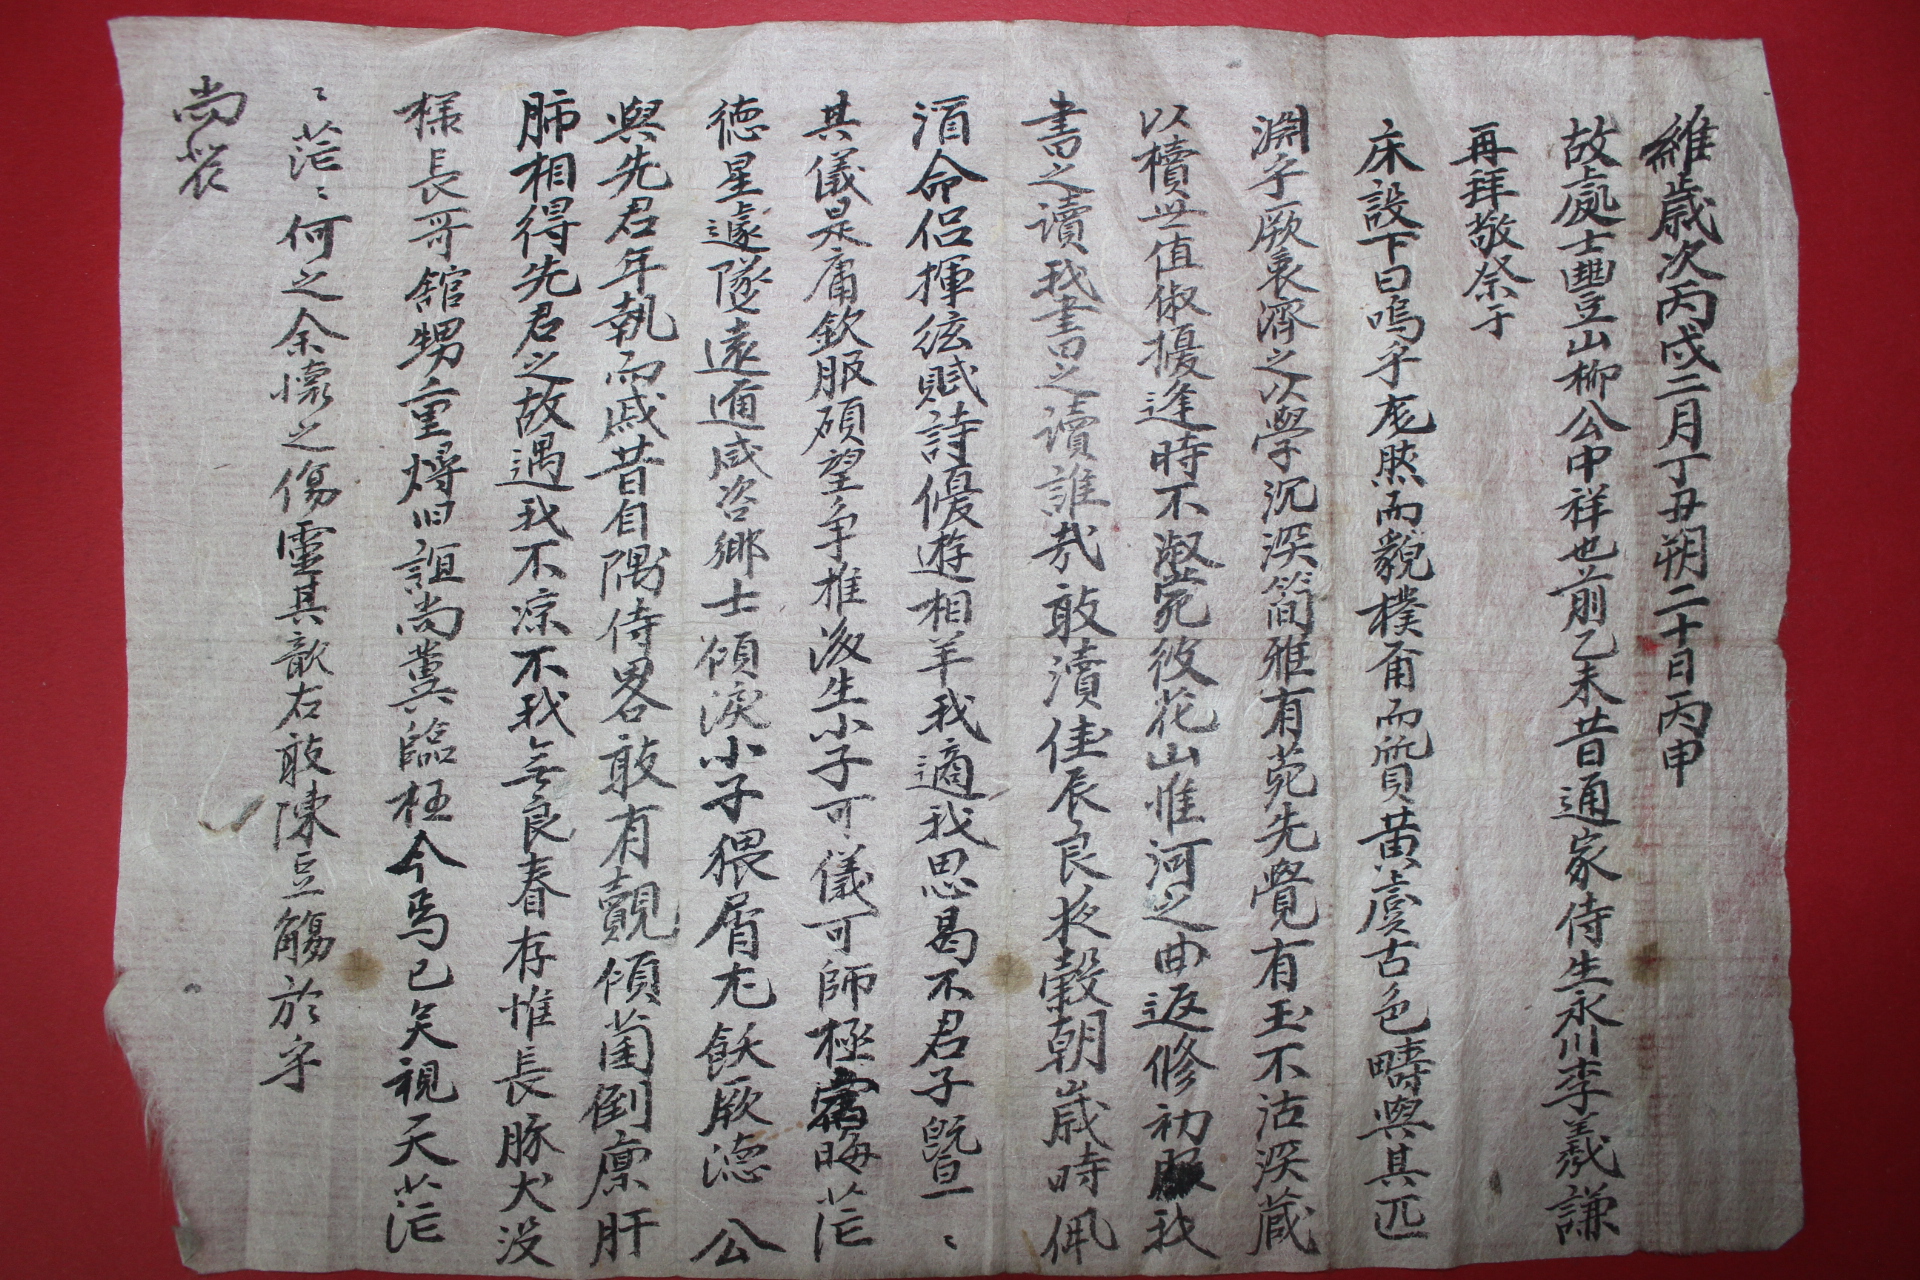 維歲次丙戌二月丁丑朔二十日丙申
故處士豐山柳公中祥也前乙未昔通家侍生永川李羲謙
再拜敬祭于
床設下曰嗚乎厖然而貌樸甬而質黃虞古色疇與其匹
淵乎厥衷濟之以學沉深簡雅有菀先覺有玉不沽深藏
以櫝世值俶擾逢時不淑菀彼花山惟河之曲返修初服我
書之讀我書之讀誰哉敢瀆佳辰良夜穀朝歲時佩
酒命侶揮絃賦詩優遊相羊我適我思曷不君子曁一〻
其儀是庸欽服碩望争推後生小子可儀可師極窩晦茫
德星遽隊遠邇咸咨鄉士傾淚小子猥屑尤飫厥德 公
與先君年執而戚昔自隅侍畧敢有覿傾菌倒廩肝
肺相得先君之故遇我不凉不我無良眷存惟長豚犬没
樣長哥舘甥重燖旧誼尚冀臨枉今焉已矣視天茫
〻茫〻何之余懷之傷靈其歆右敢陳豆觴於乎
尚饗